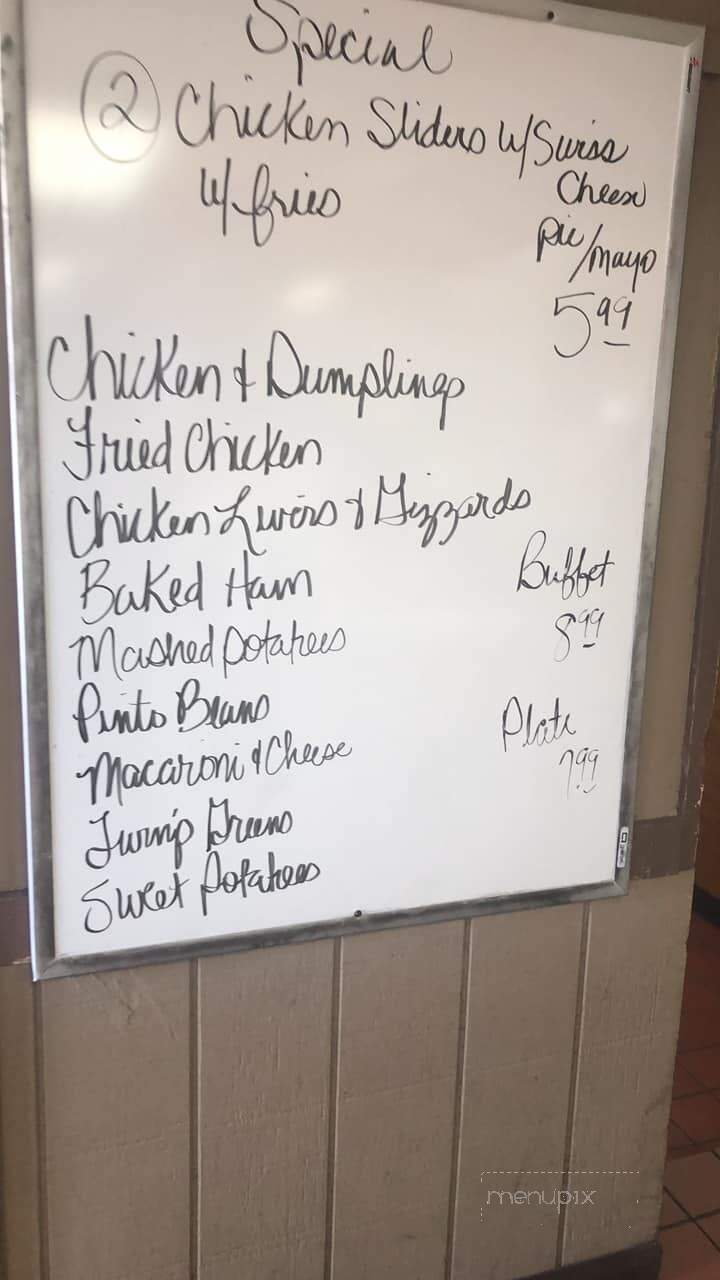 Special
2 Chicken Sliders w/Swiss
Cheese
w/fries
pic/mayo
5.99
Chicken & Dumplings
Fried Chicken
Chicken Livers & Gizzards
Baked Ham
Buffet
8.99
Mashed potatoes
Pinto Beans
Plate
7.99
Macaroni & Cheese
Turnip Greens
Sweet Potatoes
menupix